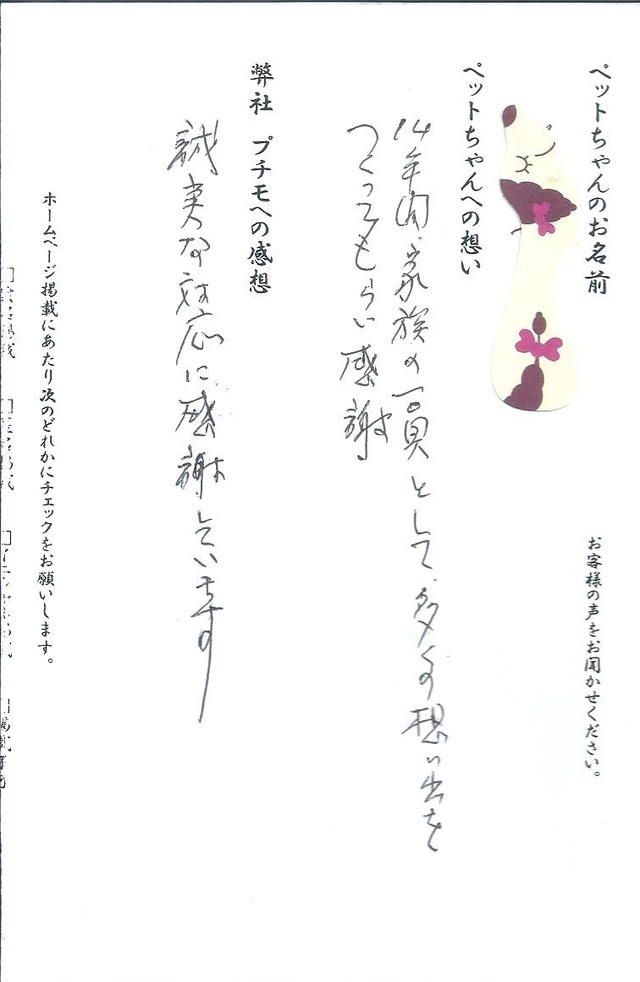 ペットちゃんのお名前
お客様の声をお聞かせください。
ペットちゃんへの想い
14年間、家族の一員として、多くの想い出を
つくってもらい感謝
弊社 プチモへの感想
誠実な対応に感謝しています
ホームページ掲載にあたり次のどれかにチェックをお願いします。